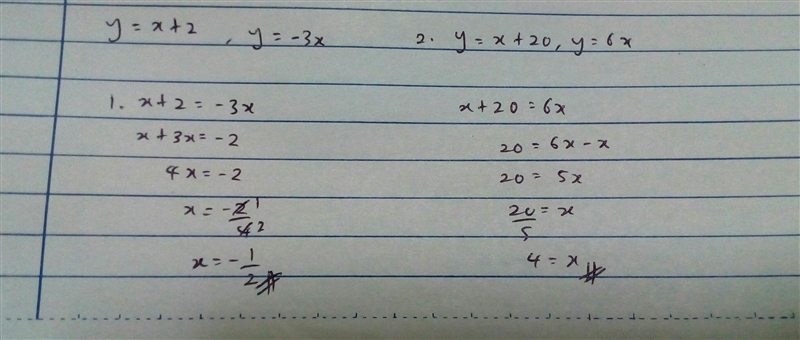 y = x + 2 , y = -3x
2. y = x + 20, y = 6x
1. x + 2 = -3x
x + 3x = -2
4x = -2
x = -2/4 1 2
x = -1/2
x + 20 = 6x
20 = 6x - x
20 = 5x
20/5 = x
4 = x